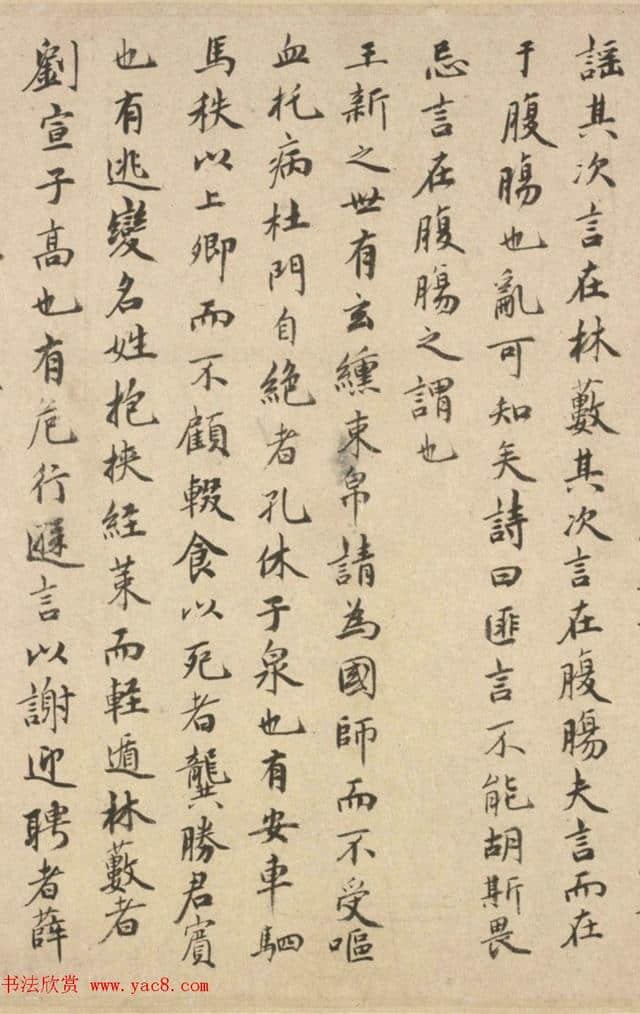 謡其次言在林藪其次言在腹腸夫言而在
于腹腸也亂可知矣詩曰匪言不能胡斯畏
忌言在腹腸之謂也
王新之世有玄纁束帛請為國師而不受嘔
血托病杜門自絶者孔休子泉也有安車駟
馬秩以上卿而不顧輟食以死者龔勝君賓
也有逃變名姓抱挾経茉而軽遁林藪者
劉宣子高也有危行遜言以謝迎聘者薛
书法欣赏 www.yac8.com